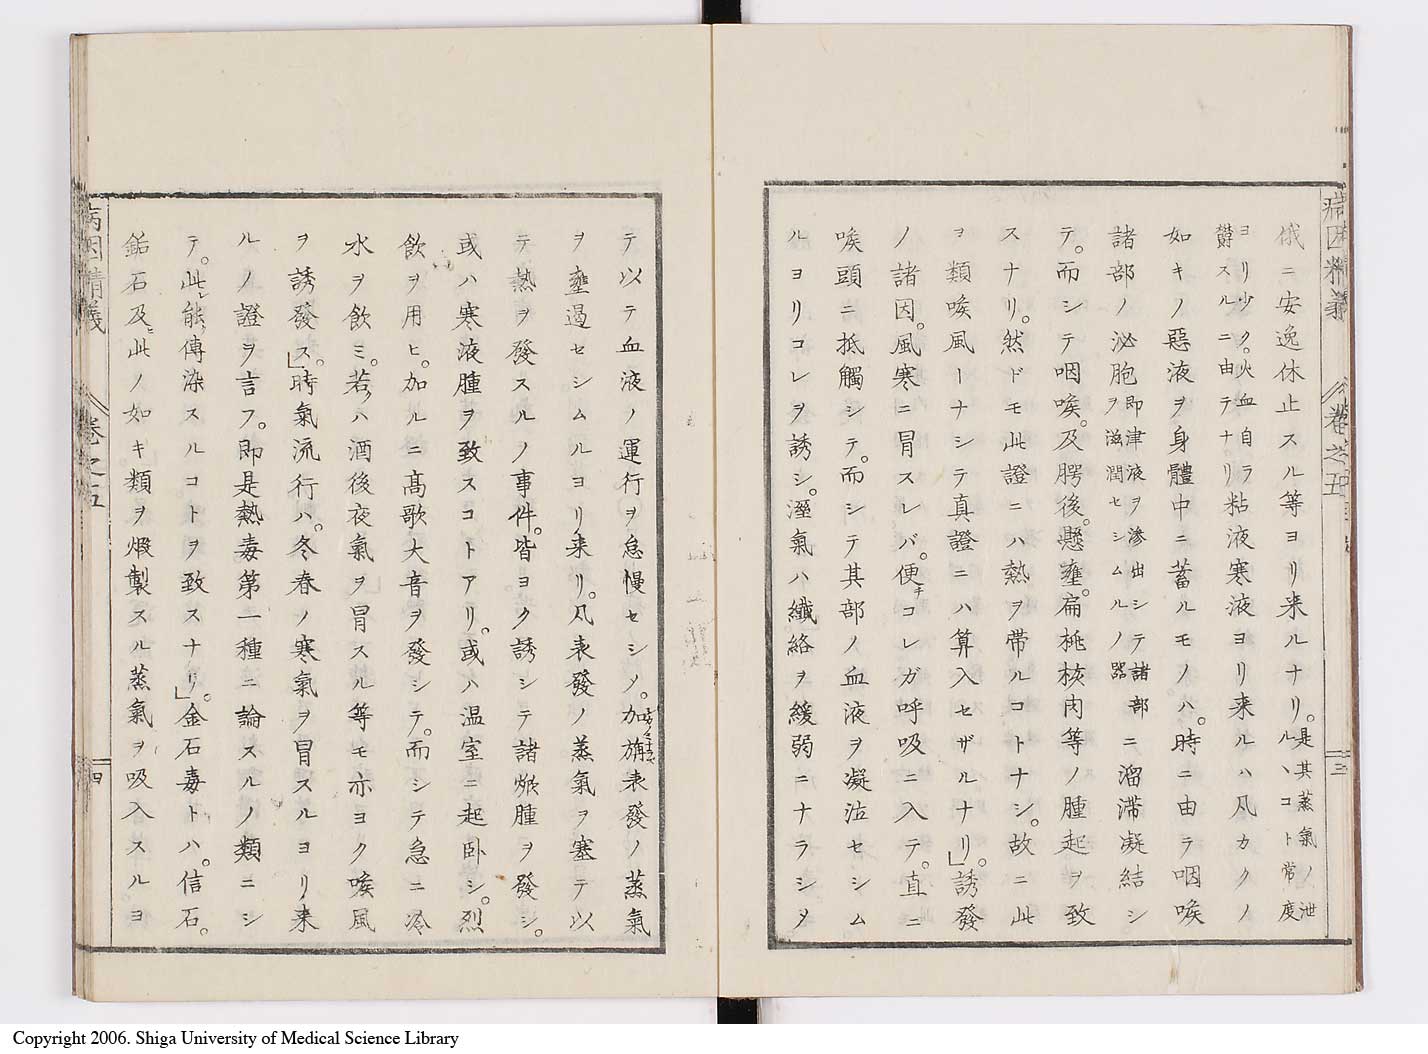 病因精義 卷之五 三
俄ニ安逸休止スル等ヨリ来ルナリ。是其蒸氣ノ泄ルヽコト常度
ヨリ少ク。火血自ラ欝スルニ由テナリ粘液寒液ヨリ来ルハ凡カクノ
如キノ惡液ヲ身體中ニ蓄ルモノハ。時ニ由ラ咽喉
諸部ノ泌胞即津液ヲ滲出シテ諸部ヲ滋潤セシムルノ器ニ溜滞凝結シ
テ。而シテ咽喉。及腭後。懸壅。扁桃核肉等ノ腫起ヲ致
スナリ。然ドモ此證ニハ熱ヲ帶ルコトナシ。故ニ此
ヲ類喉風ーナシテ真證ニハ算入セザルナリ」。誘發
ノ諸因。風寒ニ冒スレバ。便チコレガ呼吸ニ入テ。直ニ
喉頭ニ抵觸シテ。而シテ其部ノ血液ヲ凝泣セシム
ルヨリコレヲ誘シ。溼氣ハ纖絡ヲ緩弱ニナラシメ
テ以テ血液ノ運行ヲ怠慢セシメ。加旃表發ノ蒸氣
ヲ壅遏セシムルヨリ来リ。凡表發ノ蒸氣ヲ塞テ以
テ熱ヲ發スルノ事件。皆ヨク誘シテ諸焮腫ヲ發シ。
或ハ寒液腫ヲ致スコトアリ。或ハ温室ニ起卧シ。烈
飲ヲ用ヒ。加ルニ高歌大音ヲ發シテ。而シテ急ニ冷
水ヲ飲ミ。若クハ酒後夜氣ヲ冒スル等モ亦ヨク喉風
ヲ誘發ス」。時氣流行ハ。冬春ノ寒氣ヲ冒スルヨリ来
ルノ證ヲ言フ。即是熱毒第一種ニ論スルノ類ニシ
テ。此レ能傳染スルコトヲ致スナリ」。金石毒トハ。信石。
鉛石及ヒ此ノ如キ類ヲ煅製スル蒸氣ヲ吸入スルヨ
病因精義 卷之五 四
Copyright 2006. Shiga University of Medical Science Library